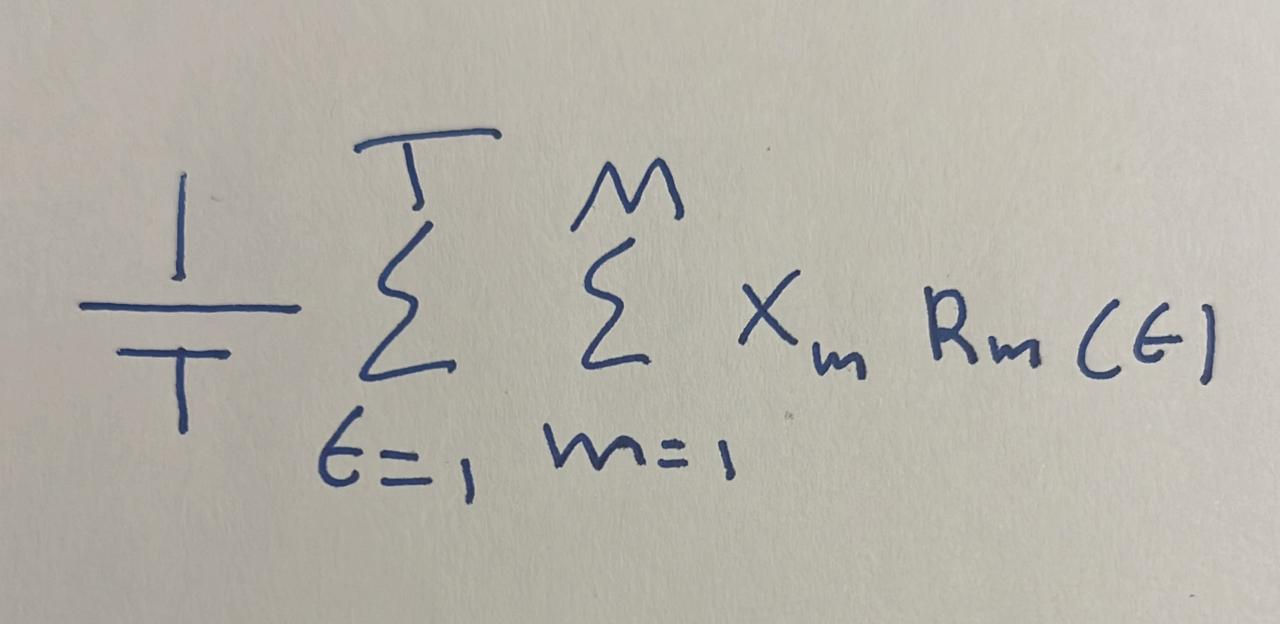 \frac{1}{T} \sum_{t=1}^{T} \sum_{m=1}^{M} X_m R_m(t)